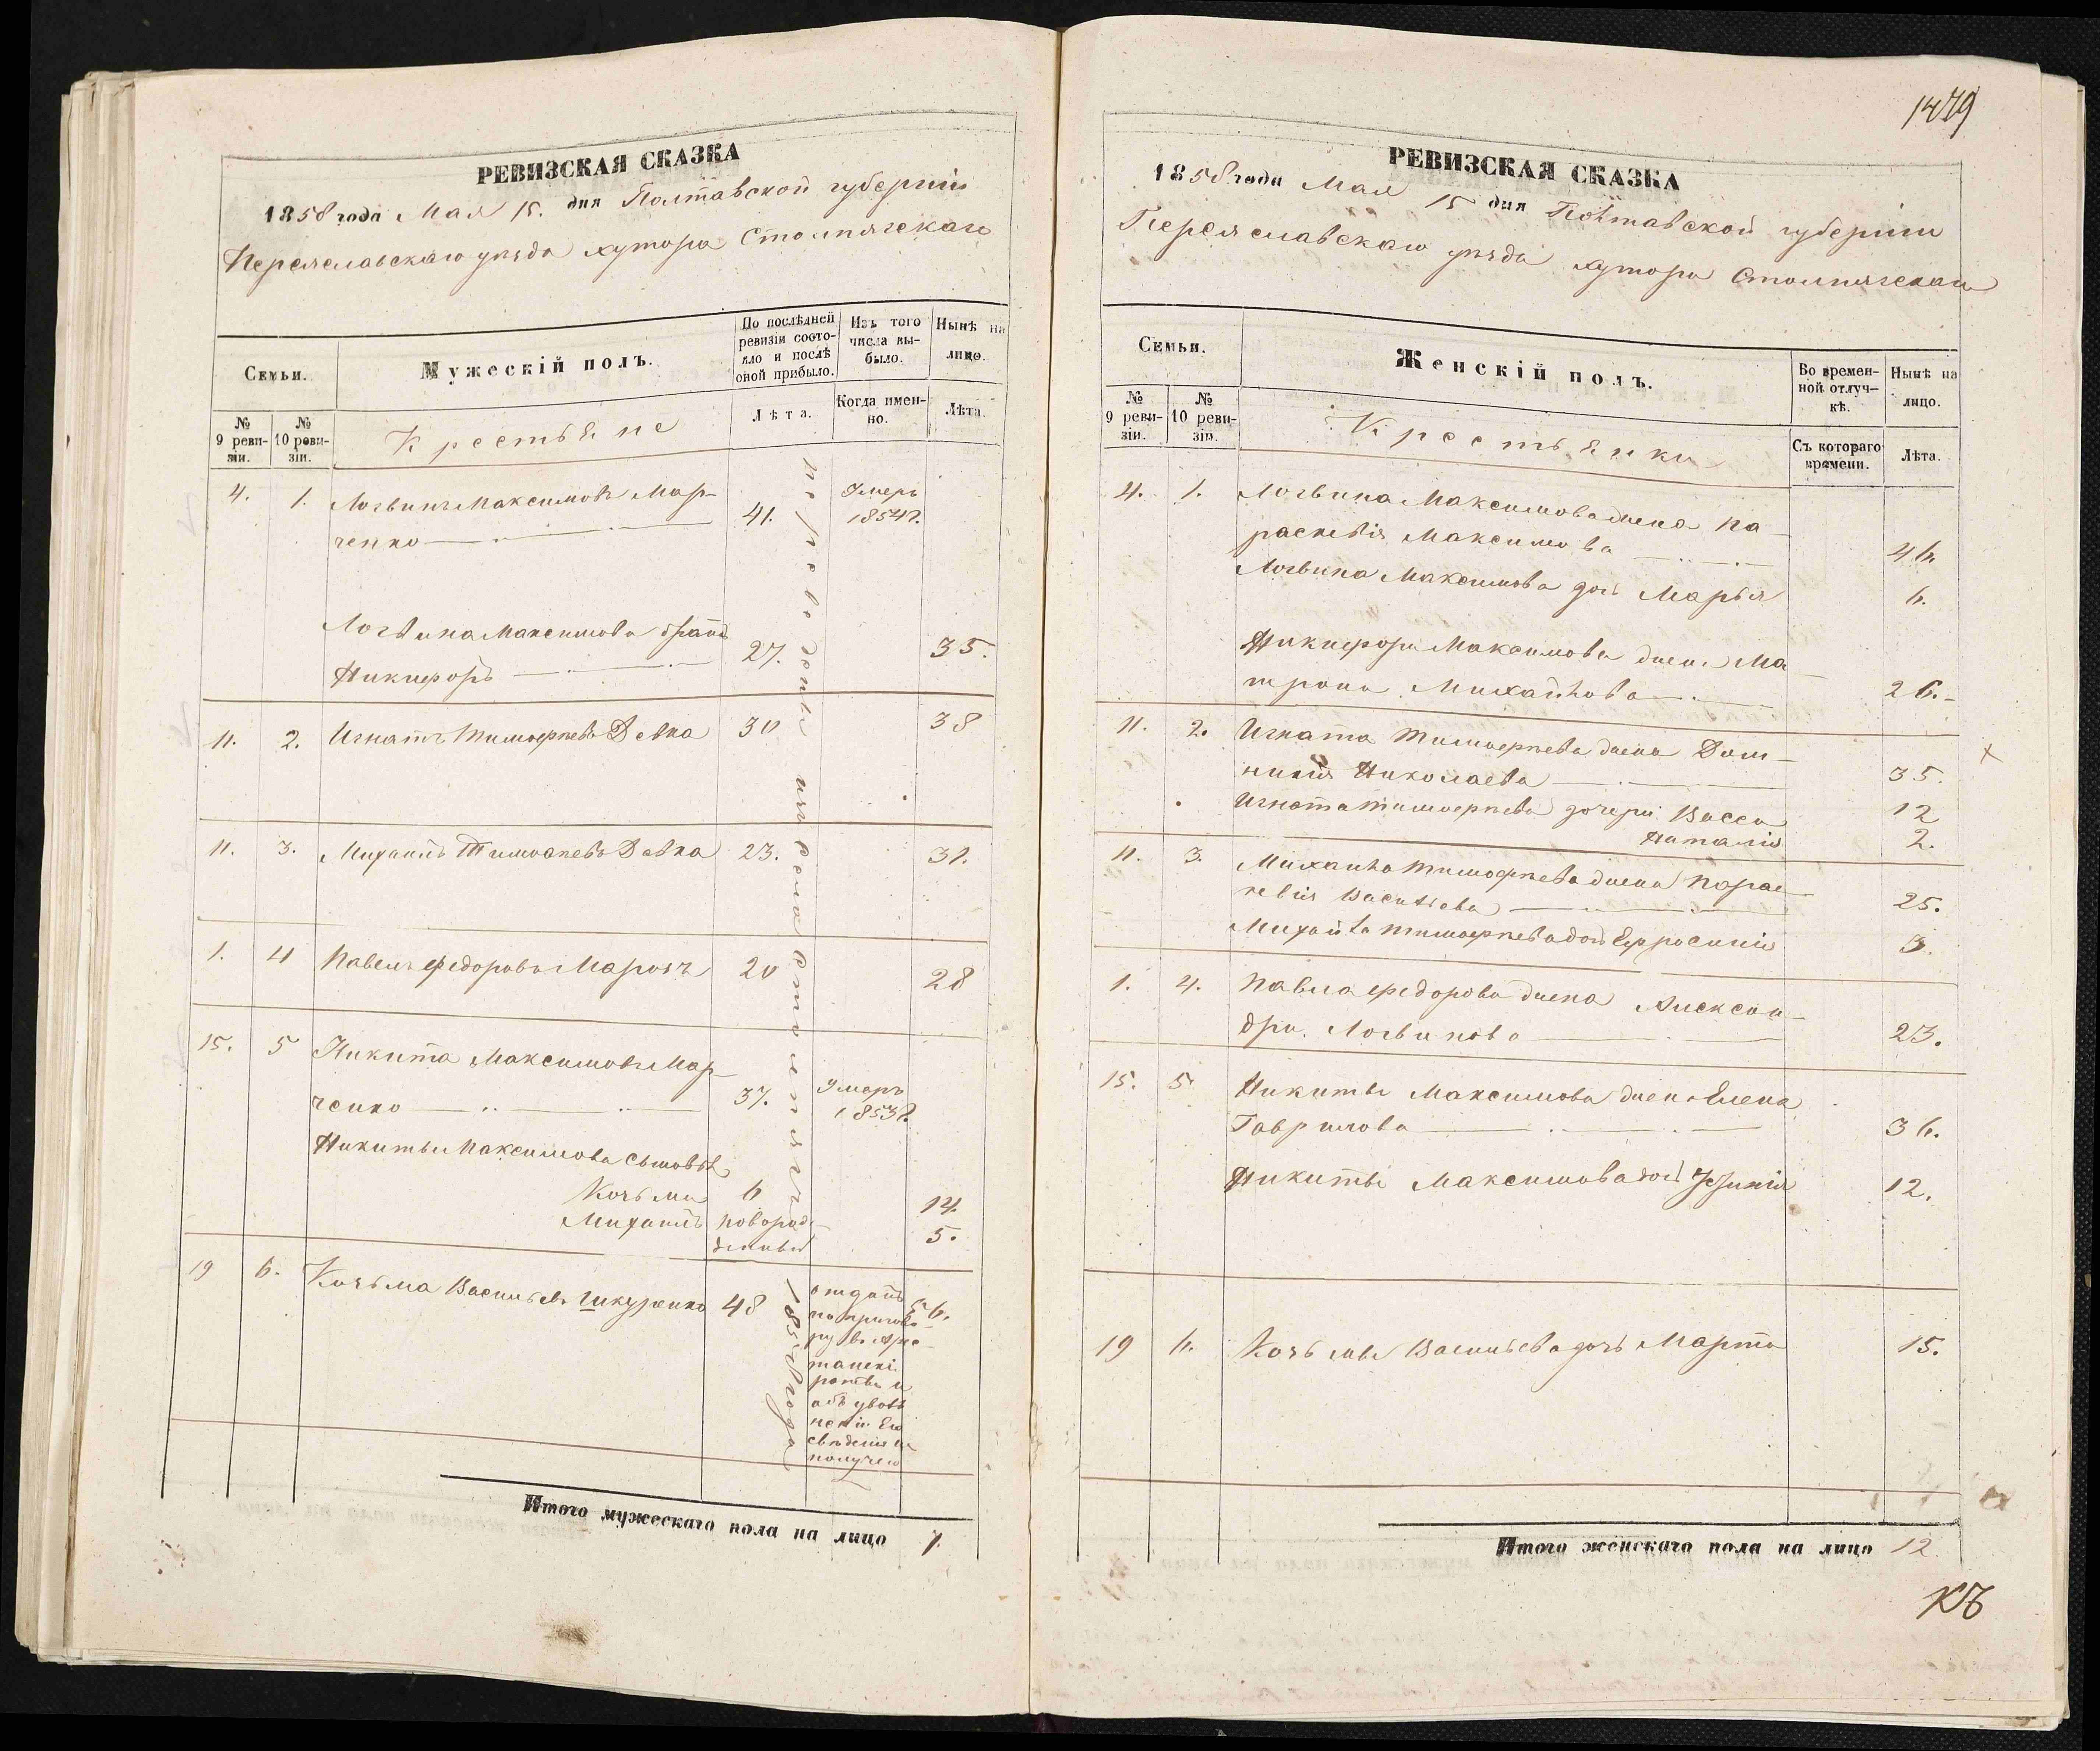 РЕВИЗСКАЯ СКАЗКА
1858 года Мая 15. дня Полтавской губерніи
Переяславскаго уѣзда хутора Столпягскаго
Семьи.
Мужескій полъ.
По послѣдней ревизіи состояло и послѣ оной прибыло.
Изъ того числа выбыло.
Нынѣ на лицо.
№ 9 ревизіи.
№ 10 ревизіи.
Крестьяне
Лѣта.
Когда именно.
Лѣта.
4. 1. Логвинъ Максимовъ Мар-
ченко 41. Умеръ 1854 г.
Логвина Максимова братъ
Никифоръ 27. 35.
11. 2. Игнатъ Тимофѣевъ Девка 30 38
11. 3. Михаилъ Тимофѣевъ Девка 23. 31.
1. 4 Павелъ Федоровъ Марохъ 20 28
15. 5 Никита Максимовъ Мар-
ченко 37. Умеръ 1853 г.
Никиты Максимова сыновья
Козьма 6 14.
Михаилъ новорож-
денный 5.
19 6. Козьма Васильевъ Шкуренко 48 56.
отданъ
по пригово-
ру въ Аре-
станскі
роты и
объ уволь
неніи Его
свѣденія не
получено
переведены изъ села Столпягъ 1851 года
Итого мужескаго пола на лицо 7.
1479
РЕВИЗСКАЯ СКАЗКА
1858 года Мая 15 дня Полтавской губерніи
Переяславскаго уѣзда хутора Столпягскаго
Семьи.
Женскій полъ.
Во временной отлучкѣ.
Нынѣ на лицо.
№ 9 ревизіи.
№ 10 ревизіи.
Крестьянки
Съ котораго времени.
Лѣта.
4. 1. Логвина Максимова жена Па-
раскевія Максимова 46.
Логвина Максимова дочь Марья 6.
Никифора Максимова жена Ма-
трона Михайлова 26.
11. 2. Игната Тимофѣева жена Дом-
никія Николаева 35.
Игната Тимофѣева дочери Васса 12
Наталія 2.
11. 3. Михаила Тимофѣева жена Парас-
кевія Васильева 25.
Михайла Тимофѣева дочь Ефросинія 3.
1. 4. Павла Федорова жена Александ-
ра Логвинова 23.
15. 5 Никиты Максимова жена Елена
Гаврилова 36.
Никиты Максимова дочь 12.
19 6. Козьмы Васильева дочь Марта 15.
Итого женскаго пола на лицо 12